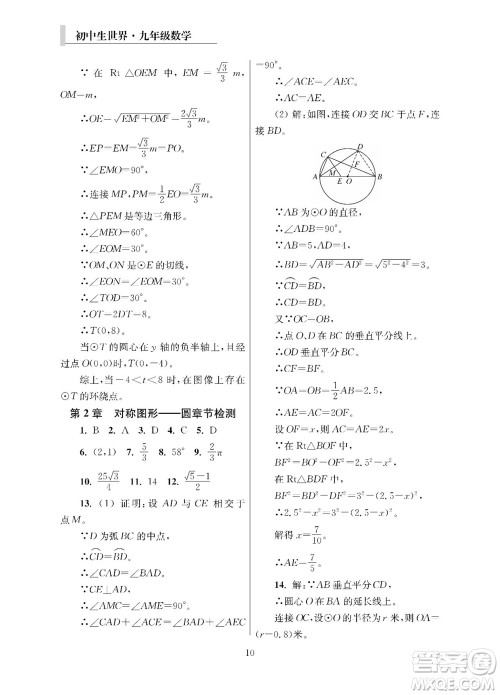 初中生世界·九年级数学
∵在 Rt△OEM 中，EM=√3/3 m，
OM=m，
∴OE=√(EM²+OM²)=2√3/3 m，
∴EP=EM=√3/3 m，
∵∠EMO=90°，
∴连接 MP，PM=1/2 EO=√3/3 m，
∴△PEM 是等边三角形。
∴∠MEO=60°。
∴∠EOM=30°。
∵OM，ON 是⊙E 的切线，
∴∠NOM=60°，∠OTD=30°，
∴OT=2DT=8。
∴T(0，8)。
当⊙T 的圆心在 y 轴的负半轴上，且
过点 O(0，0)时，T(0，-4)，
综上，当-4<t<8 时，在图像上存在
⊙T 的环绕点。
第 2 章 对称图形——圆章节检测
1. B 2. C 3. D 4. C 5. D
6. (2，1) 7. 5/3 8. 58° 9. 2/3 π
10. 25√3/4 11. 4 12. (√5-1)/2
13. (1) 证明：设 AD 与 CE 相交于
点 M。
∵D 为弧 BC 的中点，
∴CD=BD。
∴∠CAD=∠BAD。
∵CE⊥AD，
∴∠AMC=∠AME=90°。
∴∠CAD+∠ACE=∠BAD+∠AEC
=90°。
∴∠ACE=∠AEC。
∴AC=AE。
(2) 解：如图，连接 OD 交 BC 于点 F，连
接 BD。
C
D
F
A
E
O
B
∵AB 为⊙O 的直径，
∴∠ADB=90°。
∵AB=5，AD=4，
∴BD=√(AB²-AD²)=√(5²-4²)=3。
∵CD=BD，
∴CD=BD。
∵OC=OB，
∴点 O、D 在 BC 的垂直平分线上。
∴OD 是 BC 的垂直平分线。
∴∠BFO=∠BFD=90°。
∵OA=OB，AB=5，
∴OB=OD=1/2 AB=2.5，
设 OF=x，则 DF=2.5-x，
由勾股定理得，
BF²=OB²-OF²=2.5²-x²，
BF²=BD²-DF²，
∴2.5²-x²=3²-(2.5-x)²。
解得 x=7/10。
∴AE=7/5。
14. 解：∵AB 垂直平分 CD，
∴圆心 O 在 AB 的延长线上。
设圆弧的半径为 r 米，则 OA=
(r-0.8)米。
10
答案圈